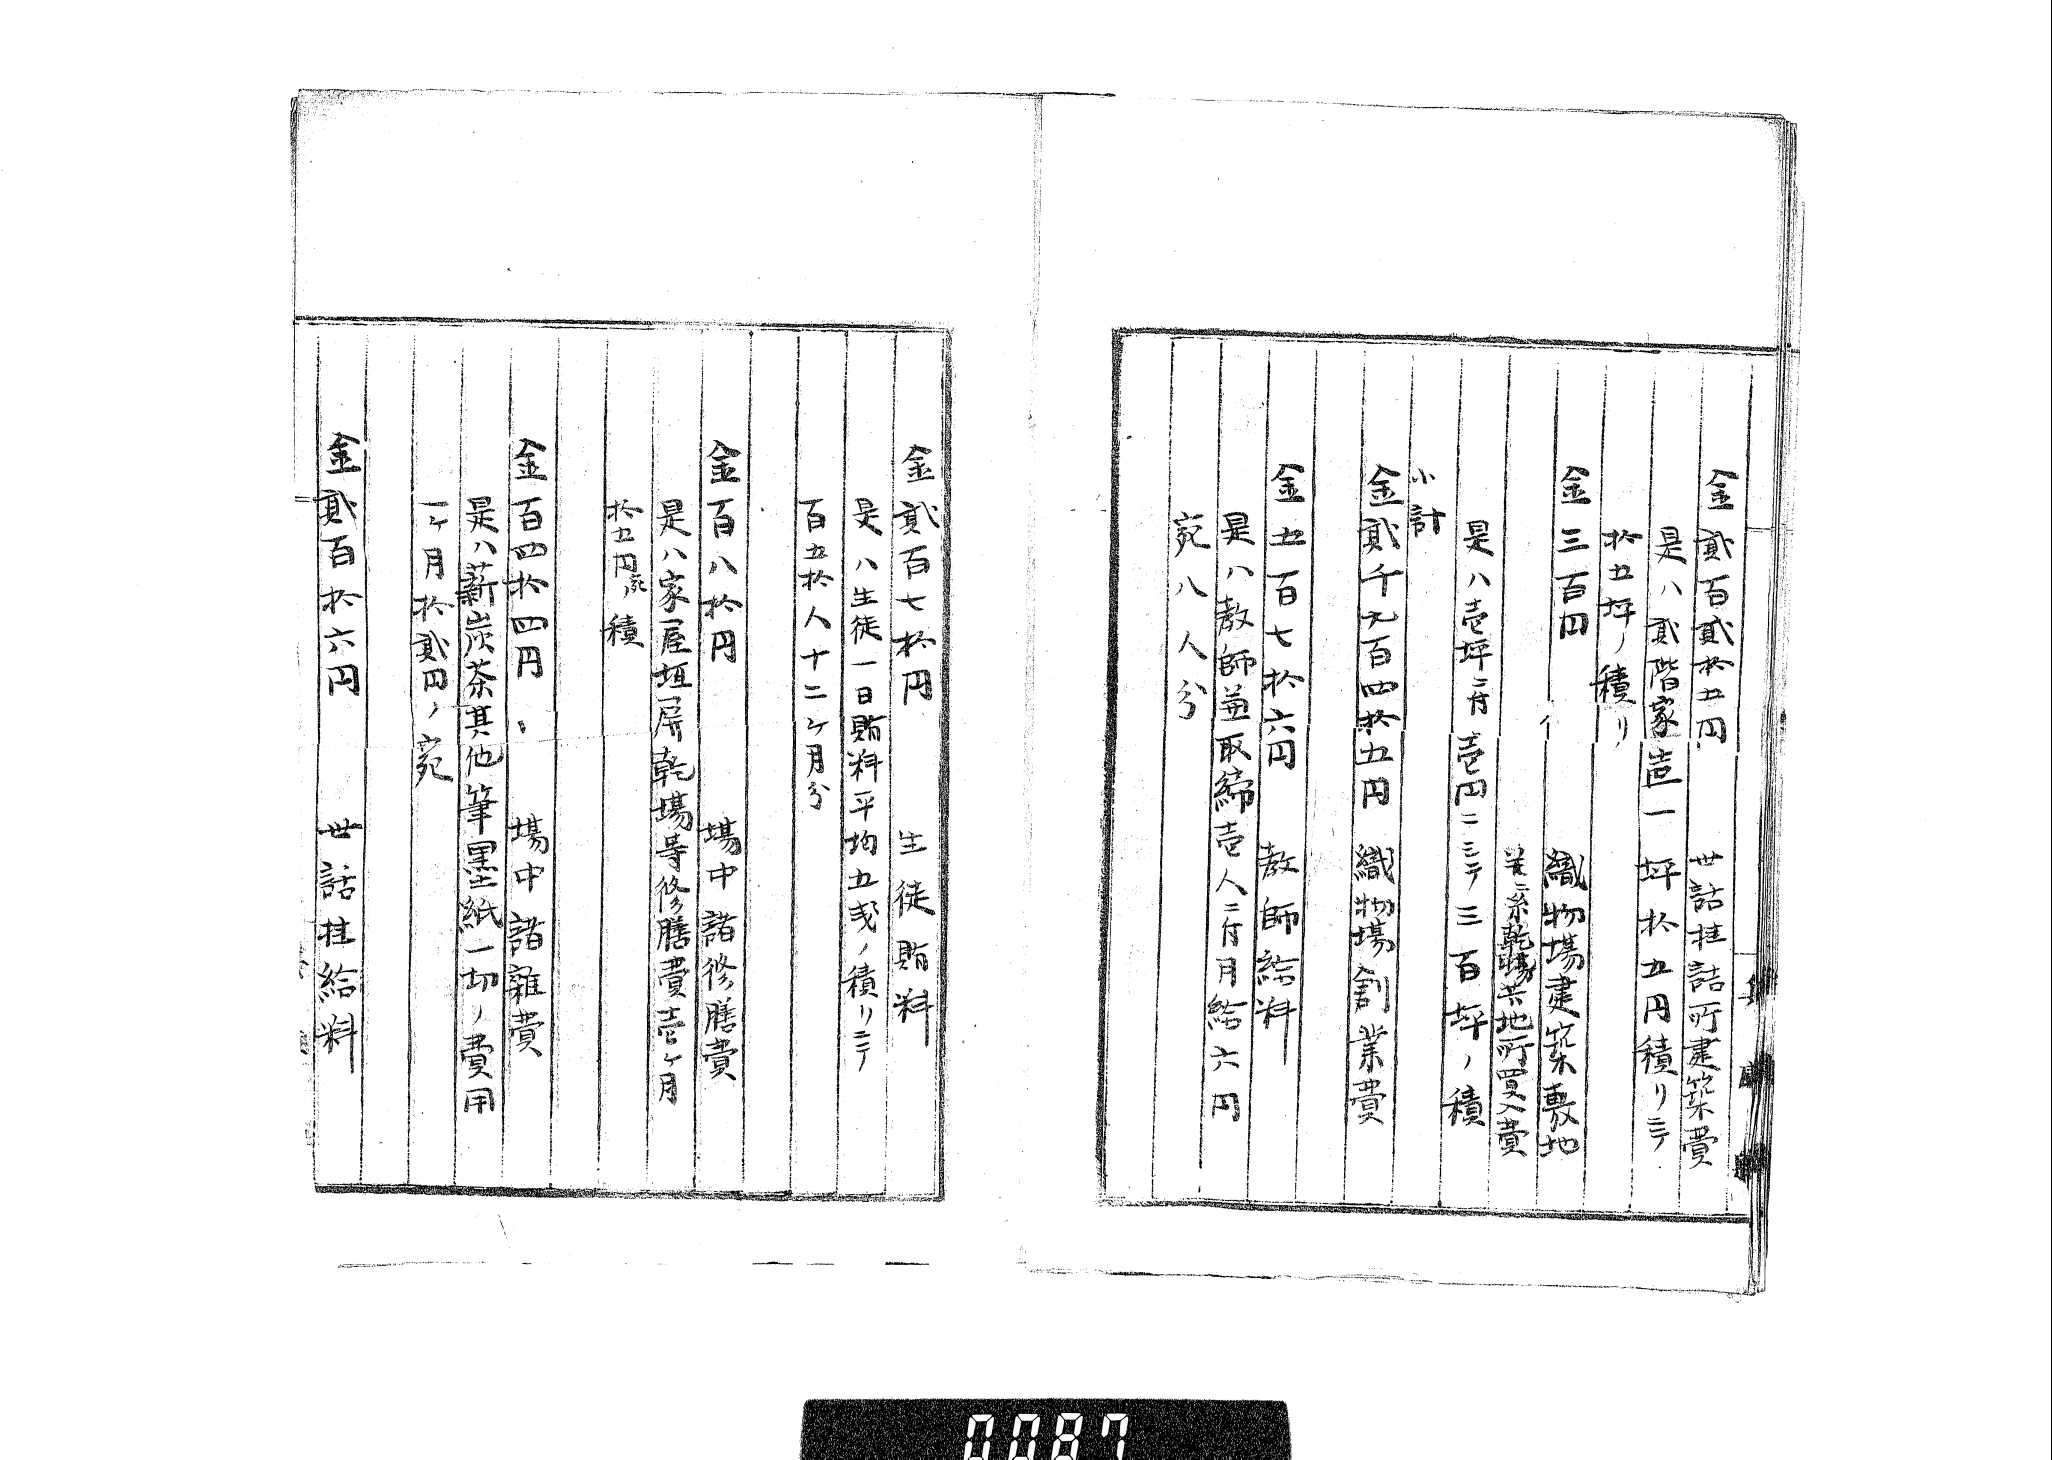 金貳百貳拾五円　世話掛詰所建築費
是ハ貳階家造一坪拾五円積リニテ
拾五坪ノ積リ
金三百円　織物場建築敷地
並ニ糸乾場共地所買入費
是ハ壱坪ニ付壱円ニシテ三百坪ノ積
小計
金貳千九百四拾五円　織物場創業費
金五百七拾六円　教師給料
是ハ教師兼取締壱人ニ付月給六円
宛八人分
金貳百七拾円　生徒賄料
是ハ生徒一日賄料平均五戋ノ積リニテ
百五拾人十二ヶ月分
金百八拾円　場中諸修膳費
是ハ家屋垣屏乾場等修膳費壱ヶ月
拾五円宛積
金百四拾四円　場中諸雜費
是ハ薪炭茶其他筆墨紙一切ノ費用
一ヶ月拾貳円ノ宛
金貳百拾六円　世話掛給料
0087